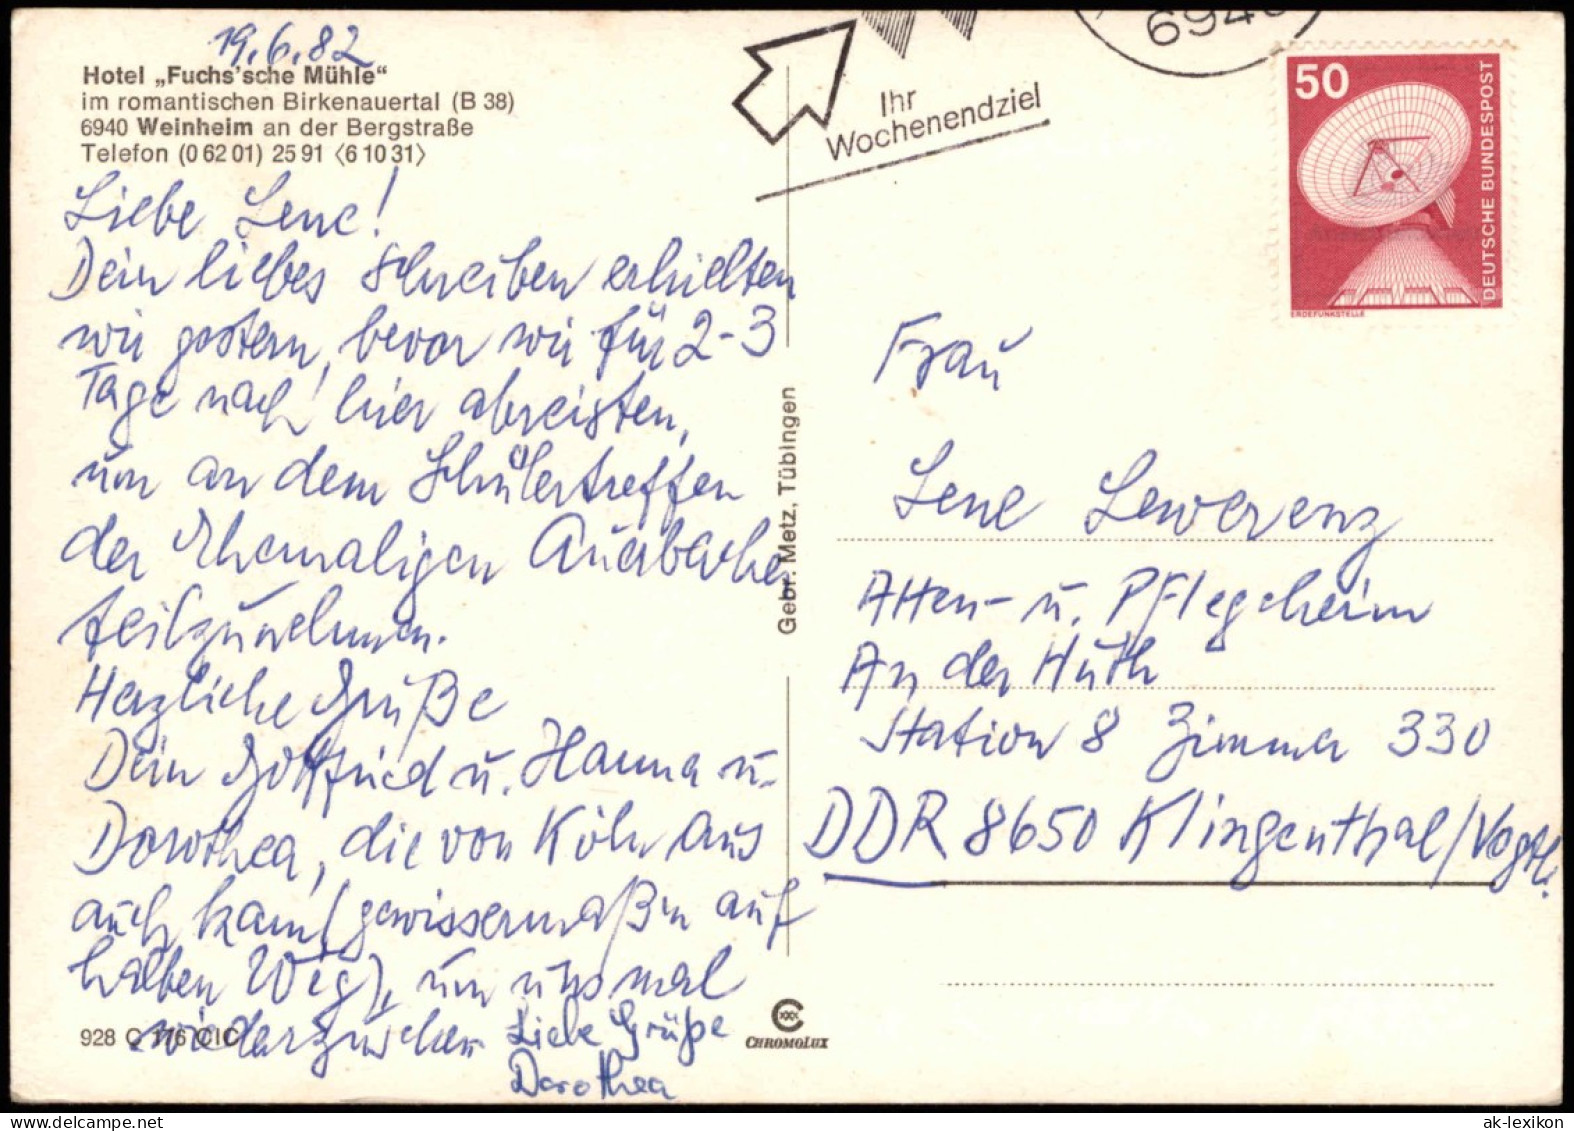 19.6.82
Hotel „Fuchs'sche Mühle"
im romantischen Birkenauertal (B 38)
6940 Weinheim an der Bergstraße
Telefon (0 62 01) 25 91 〈6 10 31〉
Liebe Lene!
Dein liebes Schreiben erhielten
wir gestern, bevor wir für 2-3
Tage nach hier abreisten,
um an dem Schülertreffen
der Ehemaligen Auerbacher
teilzunehmen.
Herzliche Grüße
Dein Gottfried u. Hanna u.
Dorothea, die von Köln aus
auch kam (gewissermaßen auf
halben Weg), um uns mal
wiederzusehen
Liebe Grüße
Dorothea
928 C 176 CIC
Gebr. Metz, Tübingen
CHROMOLUX
Ihr
Wochenendziel
694
50
DEUTSCHE BUNDESPOST
ERDEFUNKSTELLE
Frau
Lene Lewerenz
Alten- u. Pflegeheim
An der Huth
Station 8 Zimmer 330
DDR 8650 Klingenthal/Vogtl.
ak-lexikon